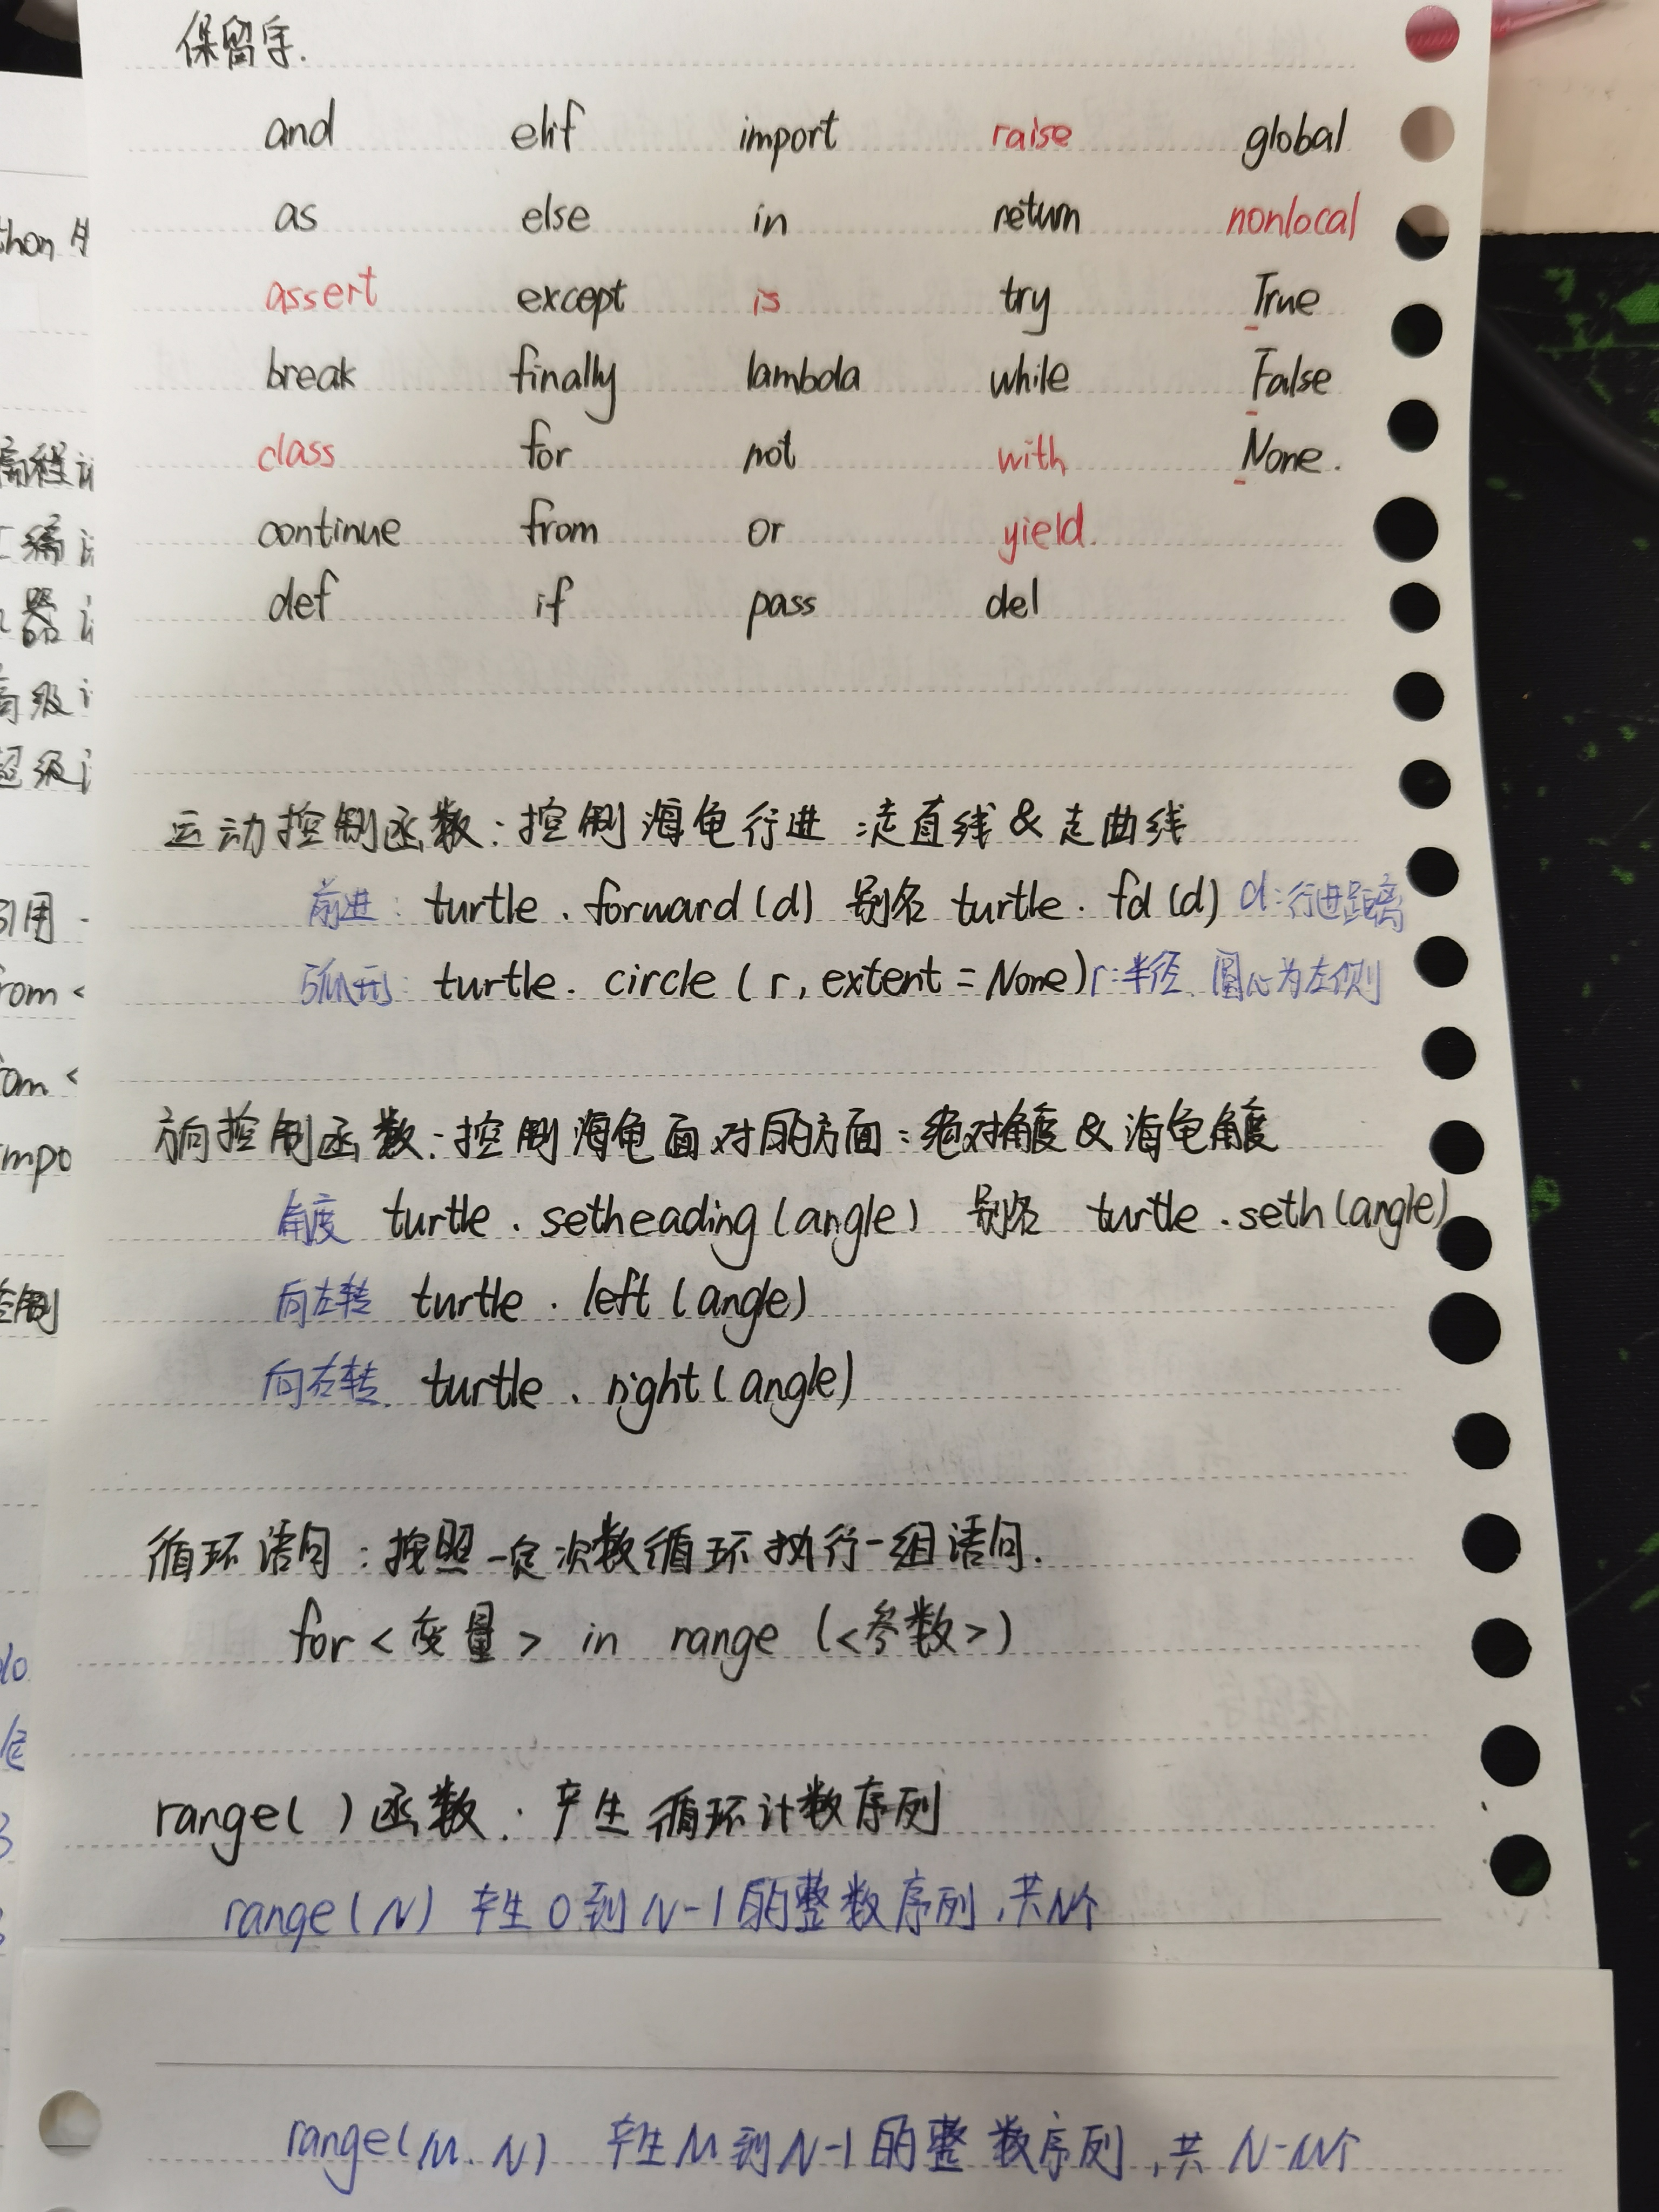 保留字.
and elif import raise global
as else in return nonlocal
assert except is try True
break finally lambda while False
class for not with None.
continue from or yield
def if pass del
运动控制函数:控制海龟行进:走直线&走曲线
前进: turtle.forward(d) 别名 turtle.fd(d) d:行进距离
弧形: turtle.circle(r,extent=None) r:半径 圆心为左侧
方向控制函数:控制海龟面对的方面:绝对角度&海龟角度
角度 turtle.setheading(angle) 别名 turtle.seth(angle)
向左转 turtle.left(angle)
向右转 turtle.right(angle)
循环语句:按照一定次数循环执行一组语句.
for<变量> in range (<参数>)
range( )函数:产生循环计数序列
range(N) 产生0到N-1的整数序列,共N个
range(M.N) 产生M到N-1的整数序列,共N-M个
thon
引用
rom <
om <
mpo
控制